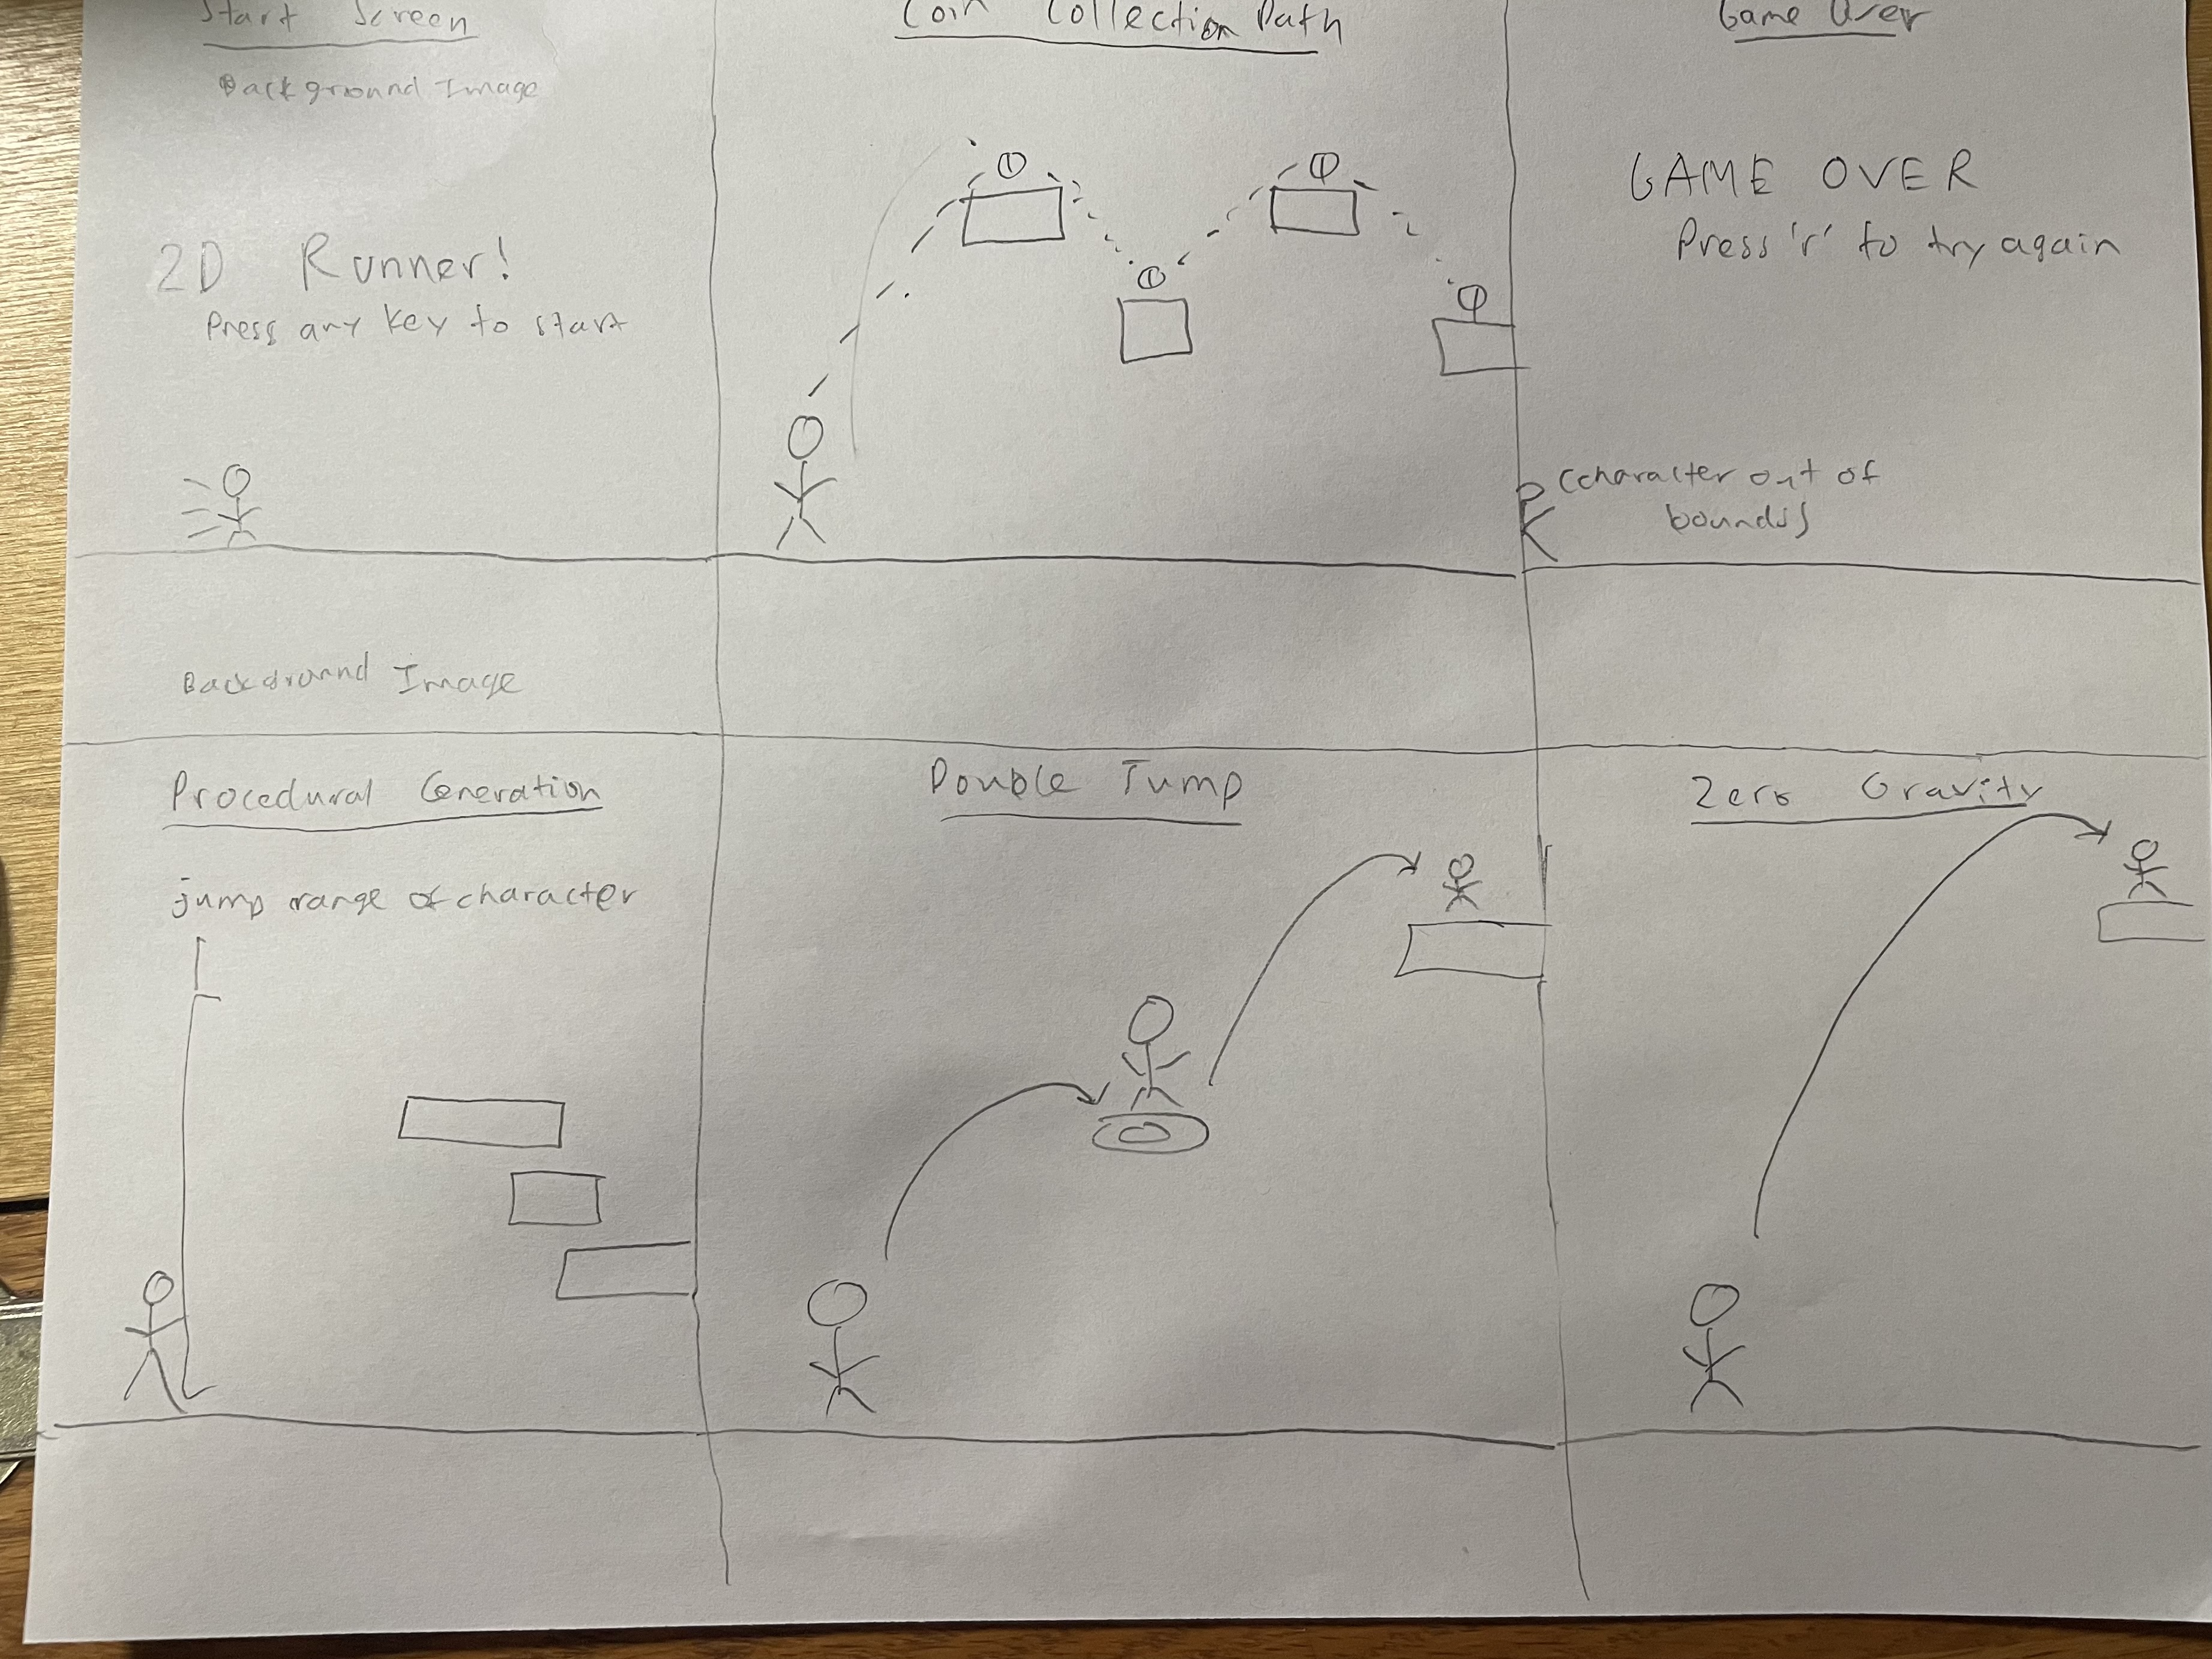 Start Screen
Background Image
2D Runner!
Press any key to start
Background Image
Coin Collection Path
Game Over
GAME OVER
Press 'r' to try again
(character out of
bounds)
Procedural Generation
jump range of character
Double Jump
Zero Gravity